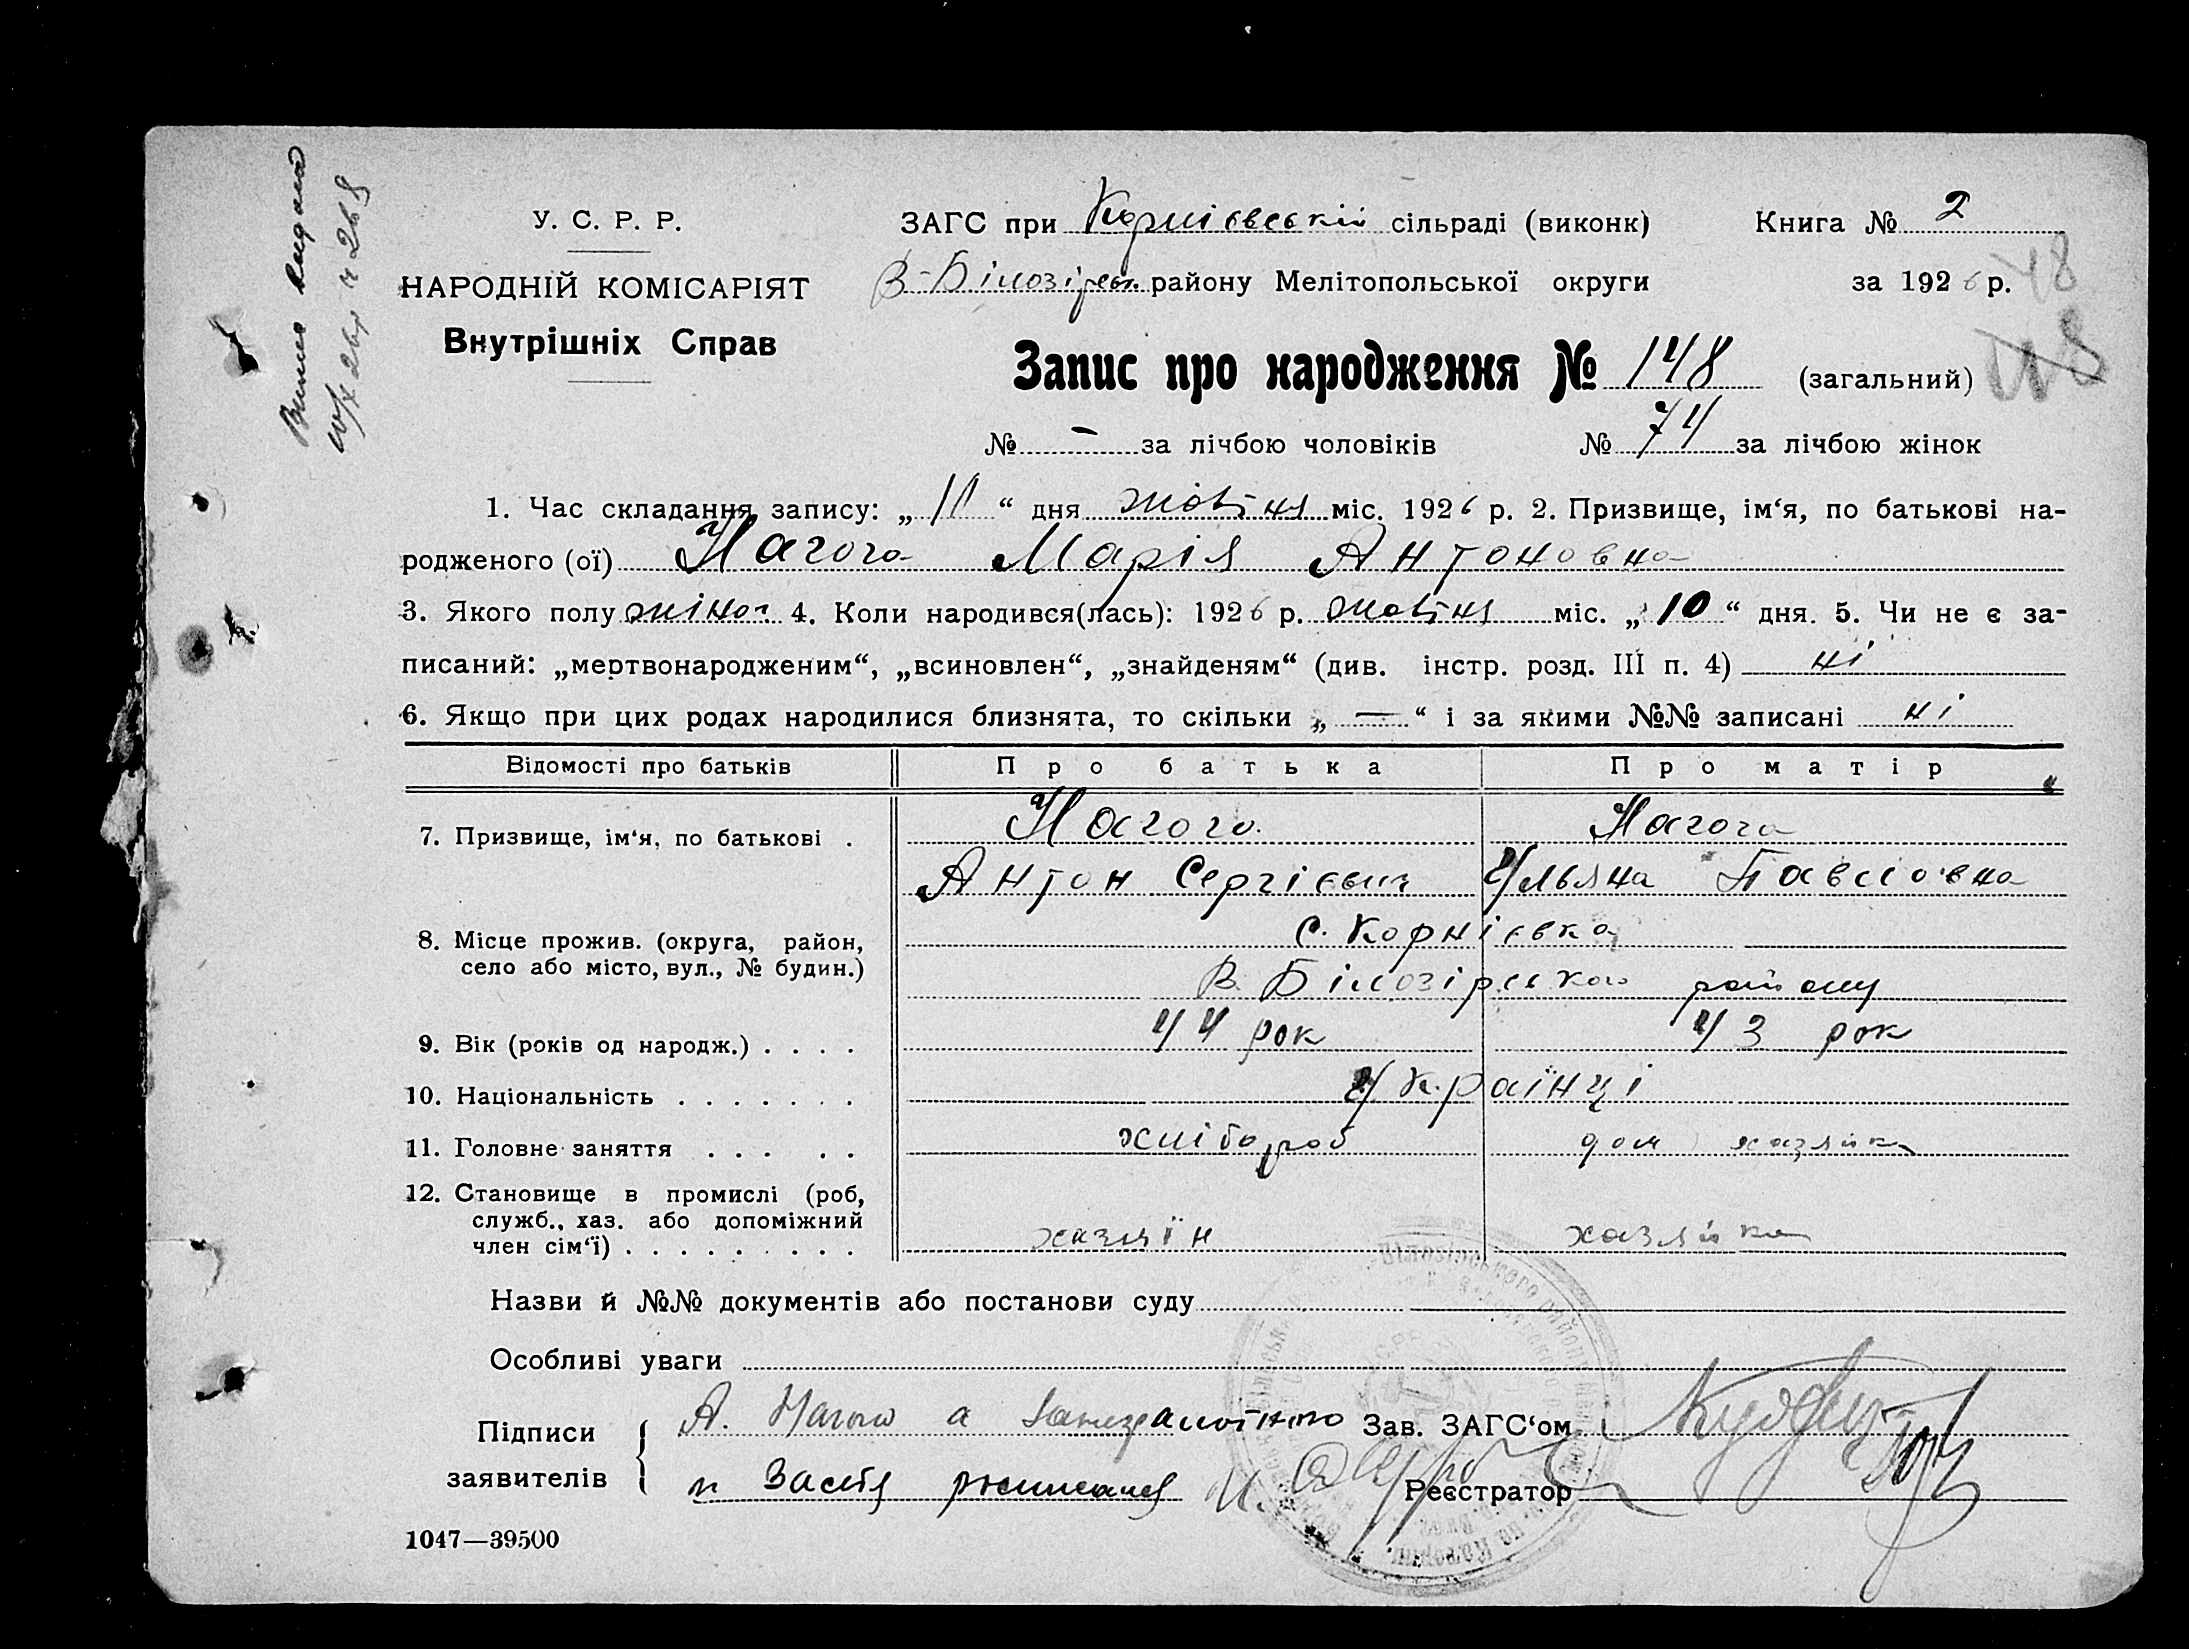 Випис видано
У. С. Р. Р.
НАРОДНІЙ КОМІСАРІЯТ
Внутрішніх Справ
ЗАГС при Корнієвській сільраді (виконк) Книга № 2
В-Білозірськ. району Мелітопольської округи за 1926 р. 48
Запис про народження № 148 (загальний)
№ - за лічбою чоловіків № 74 за лічбою жінок
1. Час складання запису: „ 11 “ дня жовтня міс. 1926 р. 2. Призвище, ім‘я, по батькові на-
родженого (ої) Нагога Марія Антоновна
3. Якого полу жіноч. 4. Коли народився(лась): 1926 р. жовтня міс. „ 10 “ дня. 5. Чи не є за-
писаний: „мертвонародженим“, „всиновлен“, „знайденям“ (див. інстр. розд. III п. 4) ні
6. Якщо при цих родах народилися близнята, то скільки „ — “ і за якими №№ записані ні
Відомості про батьків Про батька Про матір
7. Призвище, ім‘я, по батькові . Нагого Нагога
Антон Сергієвич Ульяна Павловна
8. Місце прожив. (округа, район, с. Корнієвка
село або місто, вул., № будин.) В. Білозірського району
9. Вік (років од народж.) . . . . 44 рок 43 рок
10. Національність . . . . . . . Українці
11. Головне заняття . . . . . хлібороб дом хазяйка
12. Становище в промислі (роб,
служб., хаз. або допоміжний
член сім‘ї) . . . . . . . . . хазяїн хазяйка
Назви й №№ документів або постанови суду
Особливі уваги
Підписи А. Нагого а Зав. ЗАГС‘ом
заявителів Реєстратор
1047—39500